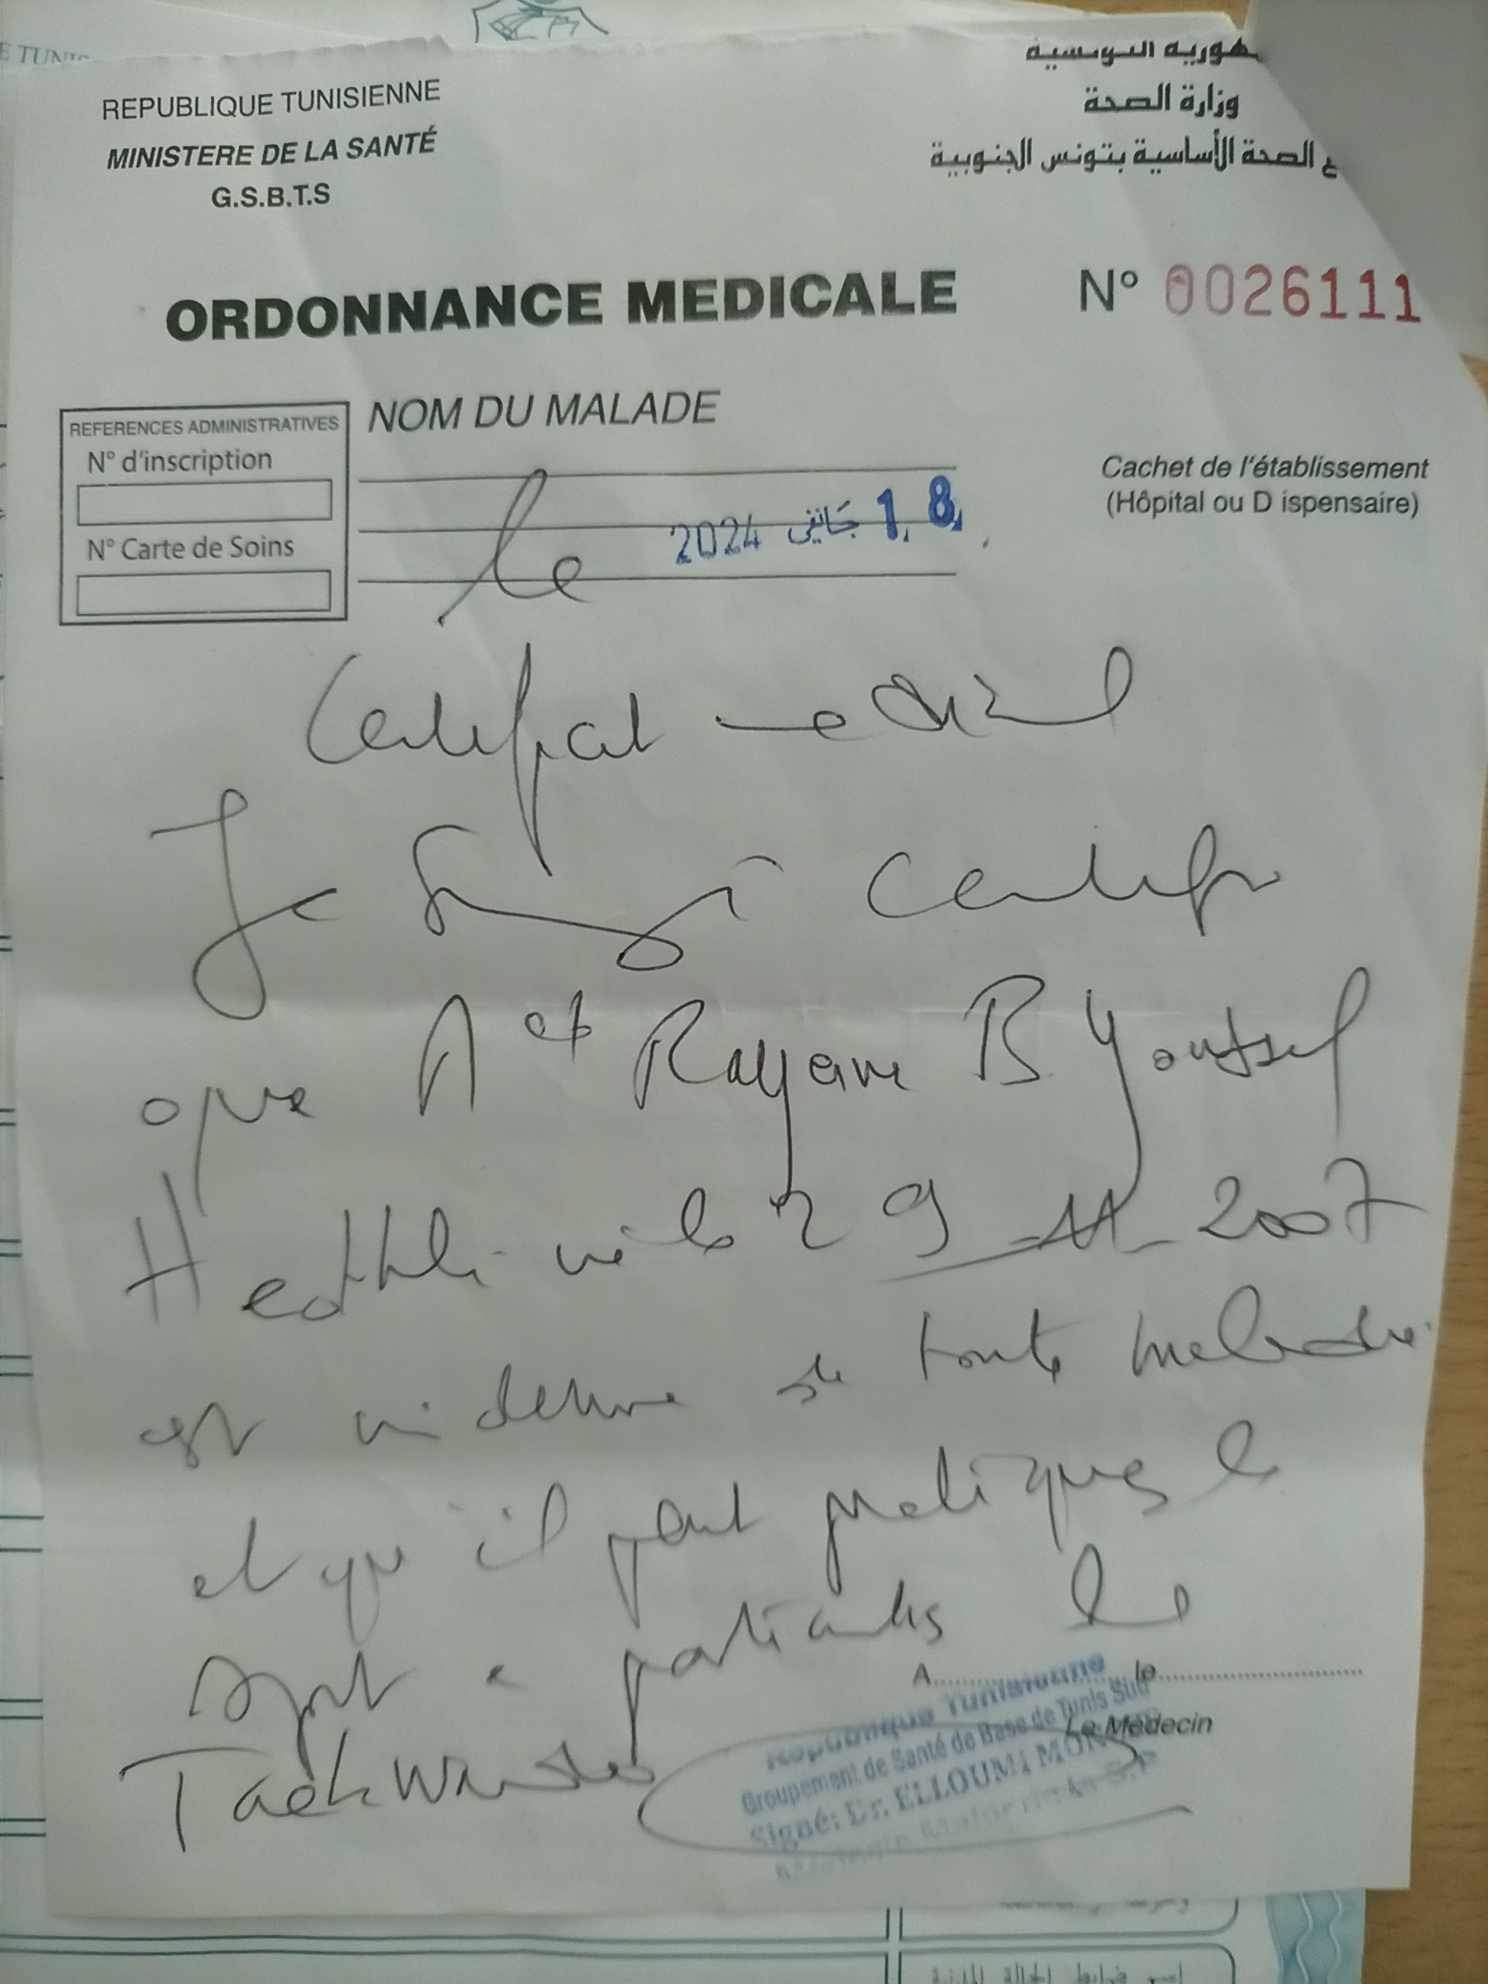 REPUBLIQUE TUNISIENNE
MINISTERE DE LA SANTÉ
G.S.B.T.S
وزارة الصحة
ع الصحة الأساسية بتونس الجنوبية
ORDONNANCE MEDICALE
N° 0026111
REFERENCES ADMINISTRATIVES
N° d'inscription
N° Carte de Soins
NOM DU MALADE
Cachet de l'établissement
(Hôpital ou D ispensaire)
le 18 جانفي 2024
Certificat medical
Je certifie
que Rayane B Youssef
né le 29_11_2007
est indemne de toute maladie
et qu'il peut pratiquer le
sport le
Taekwondo
A le
Le Médecin
Republique Tunisienne
Groupement de Santé de Base de Tunis Sud
Signé: Dr. ELLOUMI